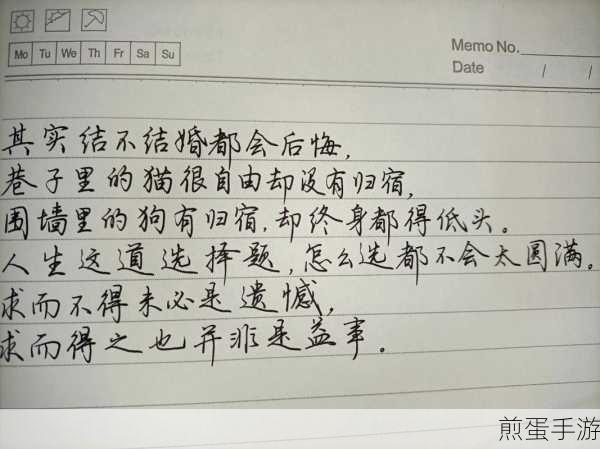 Mo Tu We Th Fr Sa Su
Memo No.
Date / /
其实结不结婚都会后悔,
巷子里的猫很自由却没有归宿,
围墙里的狗有归宿,却终身都得低头。
人生这道选择题,怎么选都不会太圆满。
求而不得未必是遗憾,
求而得之也并非是益事.
煎蛋手游